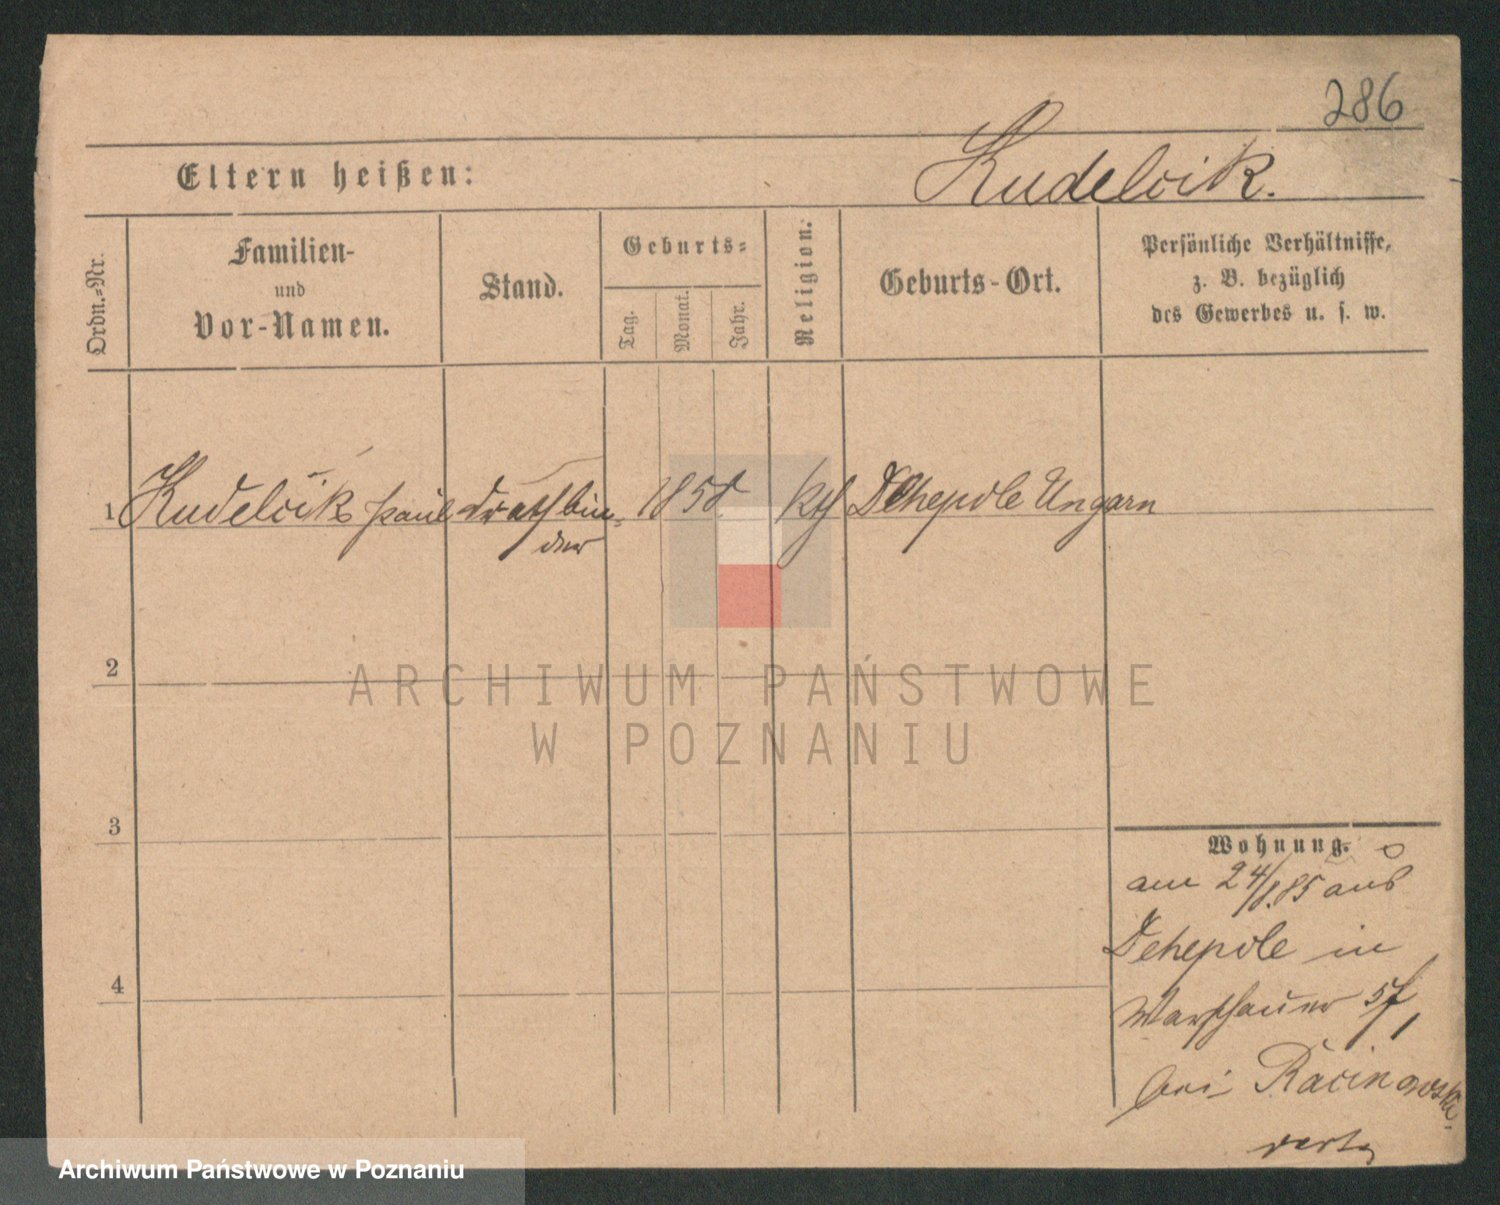 286
Eltern heißen:
Kudelcik.
Ordn.-Nr.
Familien-
und
Vor-Namen.
Stand.
Geburts-
Tag.
Monat.
Jahr.
Religion.
Geburts-Ort.
Persönliche Verhältnisse,
z. B. bezüglich
des Gewerbes u. s. w.
1 Kudelcik Paul Drathbin- 1858 kth Dehepole Ungarn
der
2
3
4
Wohnung.
am 24/8.85 aus
Dehepole in
Warschauer
bei Racinowski
ARCHIWUM PAŃSTWOWE
W POZNANIU
Archiwum Państwowe w Poznaniu